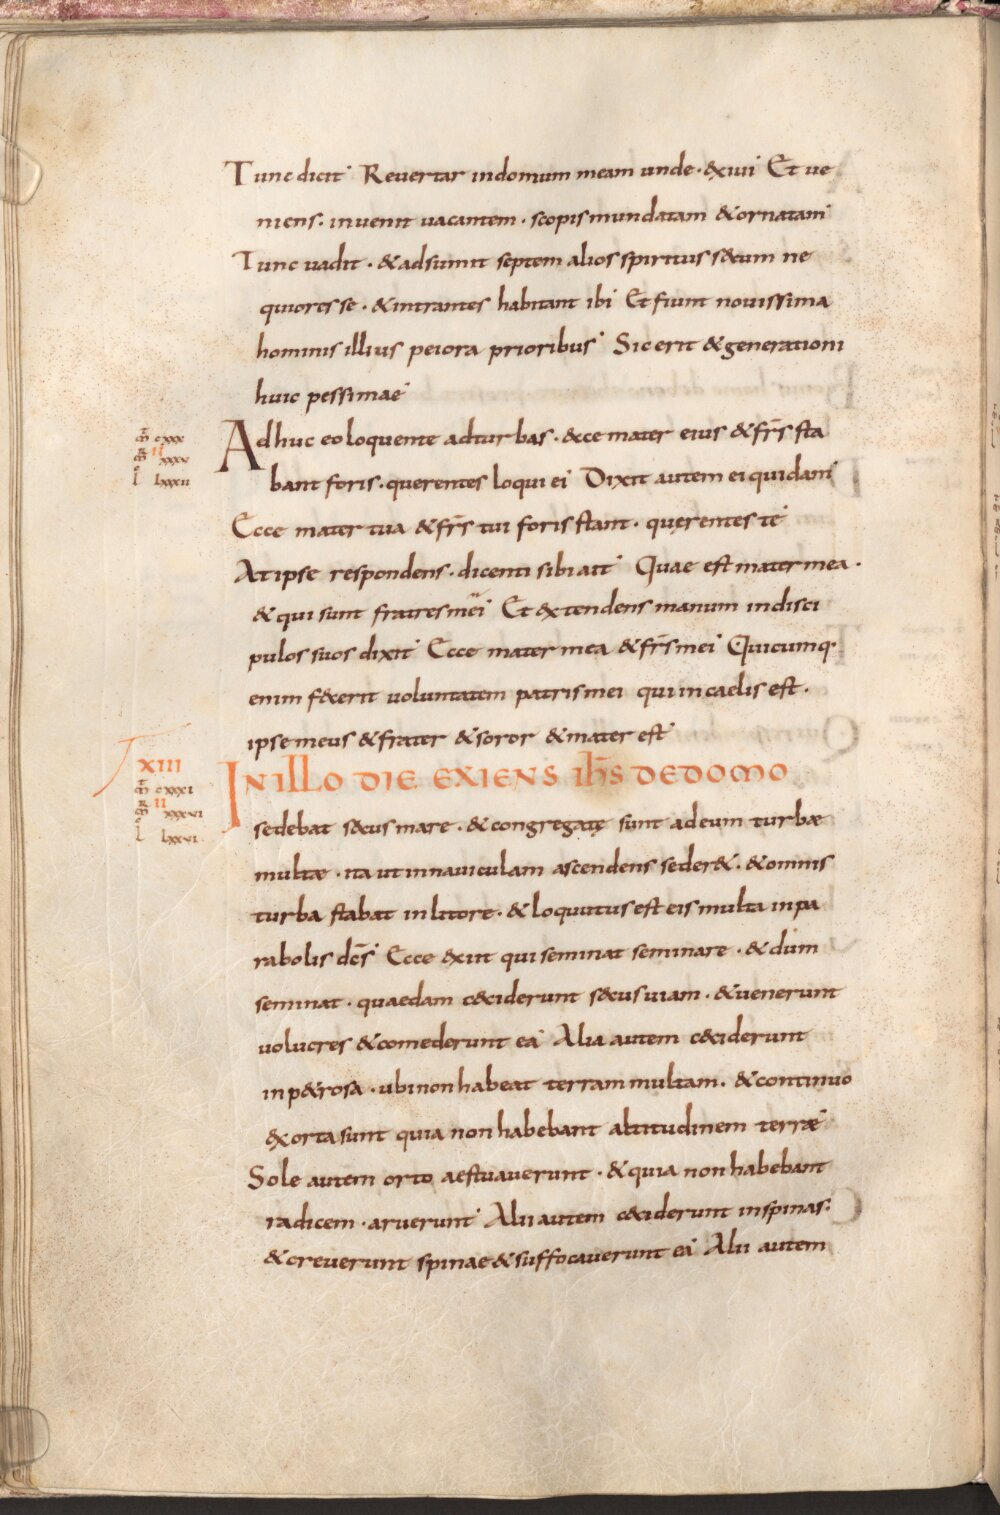 Tunc dicit Revertar in domum meam unde · exivi Et ve
niens · invenit vacantem · scopis mundatam & ornatam
Tunc vadit · & adsumit septem alios spiritus s&cum ne
quiores se · & intrantes habitant ibi Et fiunt novissima
hominis illius peiora prioribus Sic erit & generationi
huic pessimae
m̄ cxxx
Adhuc eo loquente ad turbas · &cce mater eius & fr̄s sta
m̄ II xxxv
l lxxxii
bant foris · querentes loqui ei Dixit autem ei quidam
Ecce mater tua & fr̄s tui foris stant · quęrentes te
At ipse respondens · dicenti sibi ait Quae est mater mea ·
& qui sunt fratres mei Et &xtendens manum in disci
pulos suos dixit Ecce mater mea & fr̄s mei Quicumq·
enim f&cerit voluntatem patris mei qui in caelis est ·
ipse meus & frater & soror & mater est
XIII
IN ILLO DIE EXIENS IH̄S DE DOMO
m̄ cxxxi
m̄ II xxxvi
l lxxvi
sedebat s&cus mare · & congregatę sunt ad eum turbæ
multæ · ita ut in naviculam ascendens seder& · & omnis
turba stabat in litore · & loquutus est eis multa in pa
rabolis dc̄s Ecce &xiit qui seminat seminare · & dum
seminat · quaedam c&ciderunt s&cus viam · & venerunt
volucres & comederunt ea Alia autem c&ciderunt
in p&rosa · ubi non habeat terram multam · & continuo
&xorta sunt quia non habebant altitudinem terræ
Sole autem orto aestuaverunt · & quia non habebant
radicem · aruerunt Alii autem c&ciderunt in spinas ·
& creverunt spinae & suffocaverunt ea Alii autem